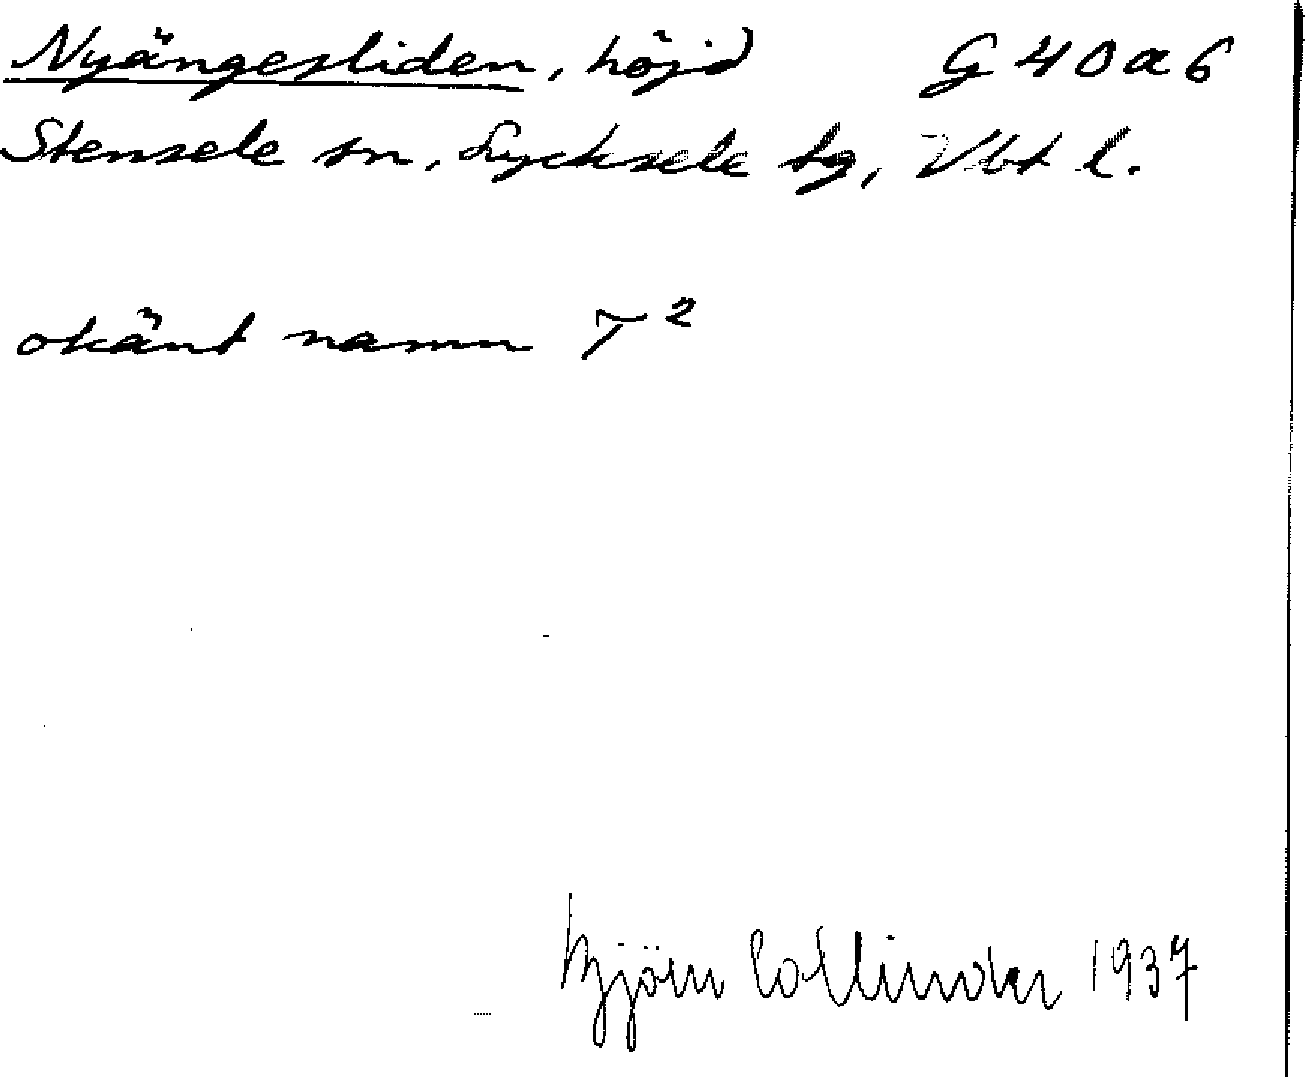 Nyängesliden, höjd G 40 a 6
Stensele sn, Lycksele tg, Vbt l.
okänt namn T²
Björn Collinder 1937